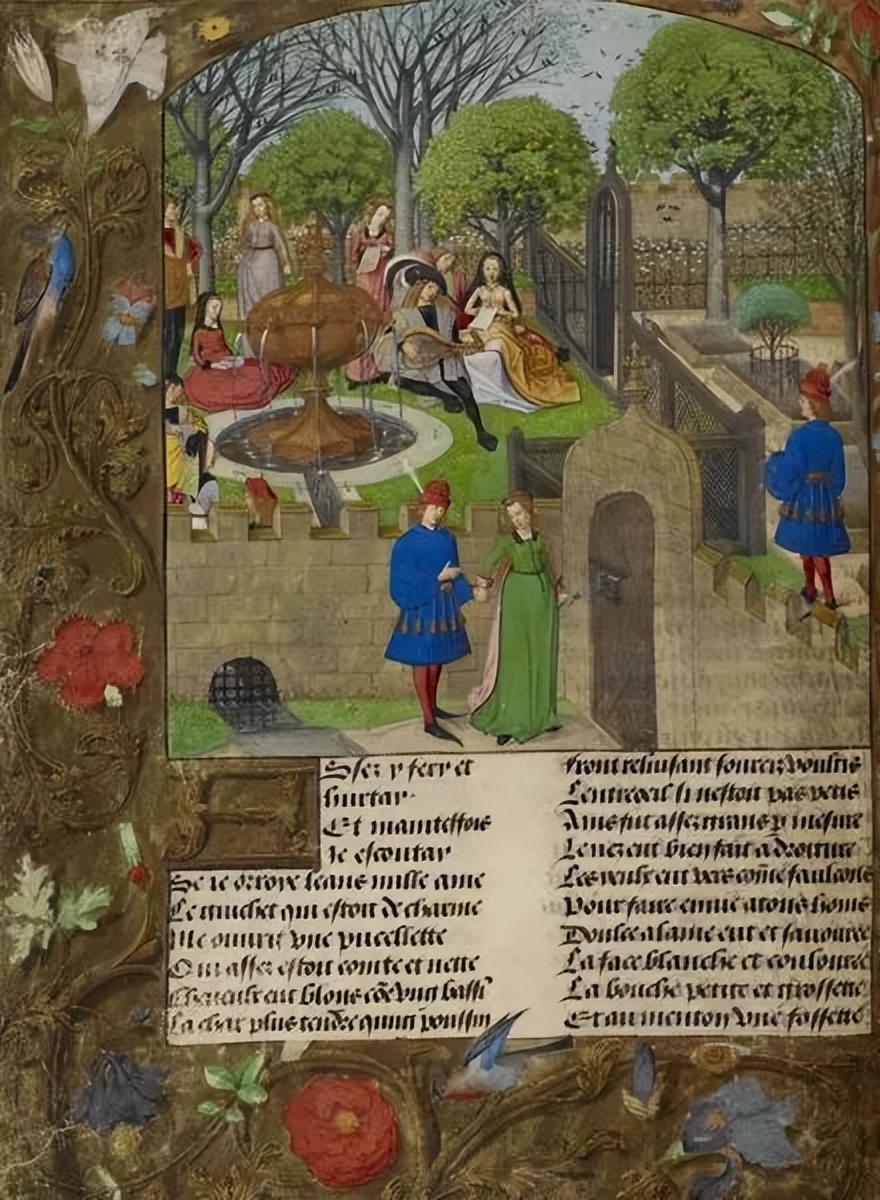 Assez y fery et
hurtay
Et maintesfois
Je escoutay
Se ie orroye leans nulle ame
Le guichet qui estoit de charme
Me ouurit vne pucellette
Qui assez estoit cointe et nette
Cheueulx eut blons cõe vng bassī
La char plus tendre qung poussin
Front reluisant sourcis voultis
Lentreoeil si nestoit pas petis
Ains fut assez grans p mesure
Le nez eut bien fait a droiture
Les yeulx eut vers cõme faulcons
Pour faire enuie a tous homs
Doulce alaine eut et sauouree
La face blanche et coulouree
La bouche petite et grossette
Et au menton vne fossette